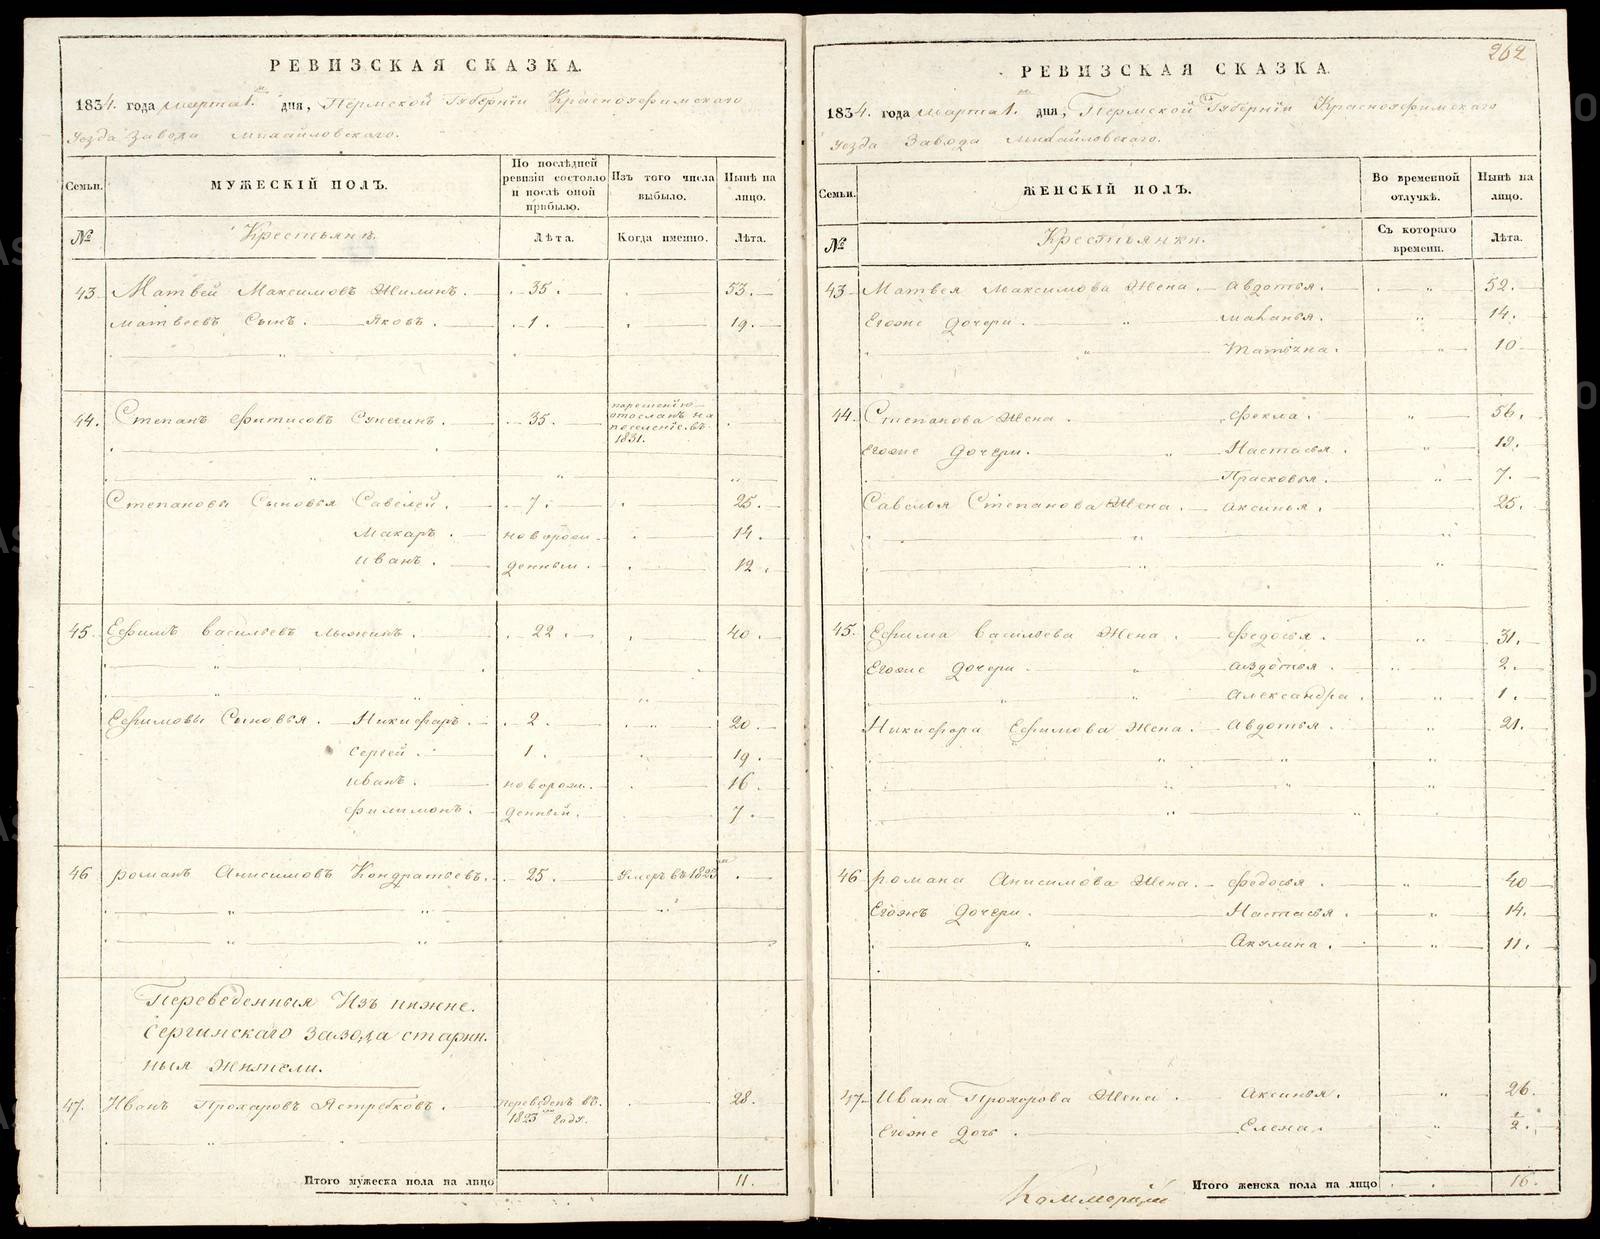 РЕВИЗСКАЯ СКАЗКА.
1834. года марта 1. дня, Пермской Губерніи Красноуфимскаго
уезда Завода Михайловскаго.
Семьи. МУЖЕСКІЙ ПОЛЪ. По послѣдней ревизіи состояло и послѣ оной прибыло. Изъ того числа выбыло. Нынѣ на лицо.
№ Крестьянъ. Лѣта. Когда именно. Лѣта.
43 Матвей Максимовъ Жилинъ. 35. 53.
матвеевъ Сынъ. Яковъ. 1. 19.
44. Степанъ Фитисовъ 35. порешенію отосланъ на поселеніе въ 1831.
Степановы Сыновья Савелей. 7. 25.
Макаръ. новорож 14.
иванъ. денныи. 12.
45. Ефимъ васильевъ лыжинъ. 22. 40.
Ефимовы Сыновья. Никифаръ. 2. 20.
Сергей. 1. 19.
иванъ. новорож. 16.
филимонъ. денный. 7.
46 романъ Анисимовъ Кондратьевъ. 25. Умеръ въ 1825
Переведенныя Изъ нижне.
Сергинскаго завода старин.
ныя жители.
47. Иванъ Прохаровъ Ястребковъ. переведенъ въ. 1823 году. 28.
Итого мужеска пола на лицо 11.
262
РЕВИЗСКАЯ СКАЗКА.
1834. года марта 1. дня, Пермской Губерніи Красноуфимскаго
уезда Завода михайловскаго.
Семьи. ЖЕНСКІЙ ПОЛЪ. Во временной отлучкѣ. Нынѣ на лицо.
№ Крестьянки. Съ котораго времени. Лѣта.
43 Матвея Максимова Жена. Авдотья. 52.
Егоже дочери. маланья. 14.
10
44. Степанова Жена. фекла. 56.
Егоже дочери. Настасья. 12.
Прасковья. 7.
Савелья Степанова Жена. Аксинья. 25.
45. Ефима васильева Жена. федосья. 31.
Егоже дочери. авдотья. 2.
Александра. 1.
Никифора Ефимова Жена. Авдотья. 21.
46 романа Анисимова Жена. федосья. 40
Егожъ дочери. Настасья. 14.
Акулина. 11.
47 Ивана Прохорова Жена. Аксинья. 26.
Егоже дочь. Елена. ½.
Итого женска пола на лицо 16.